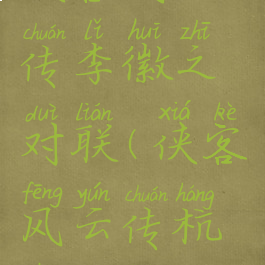 chuán lǐ huī zhī
传李徽之
duì lián xiá kè
对联(侠客
fēng yún chuán háng
风云传杭